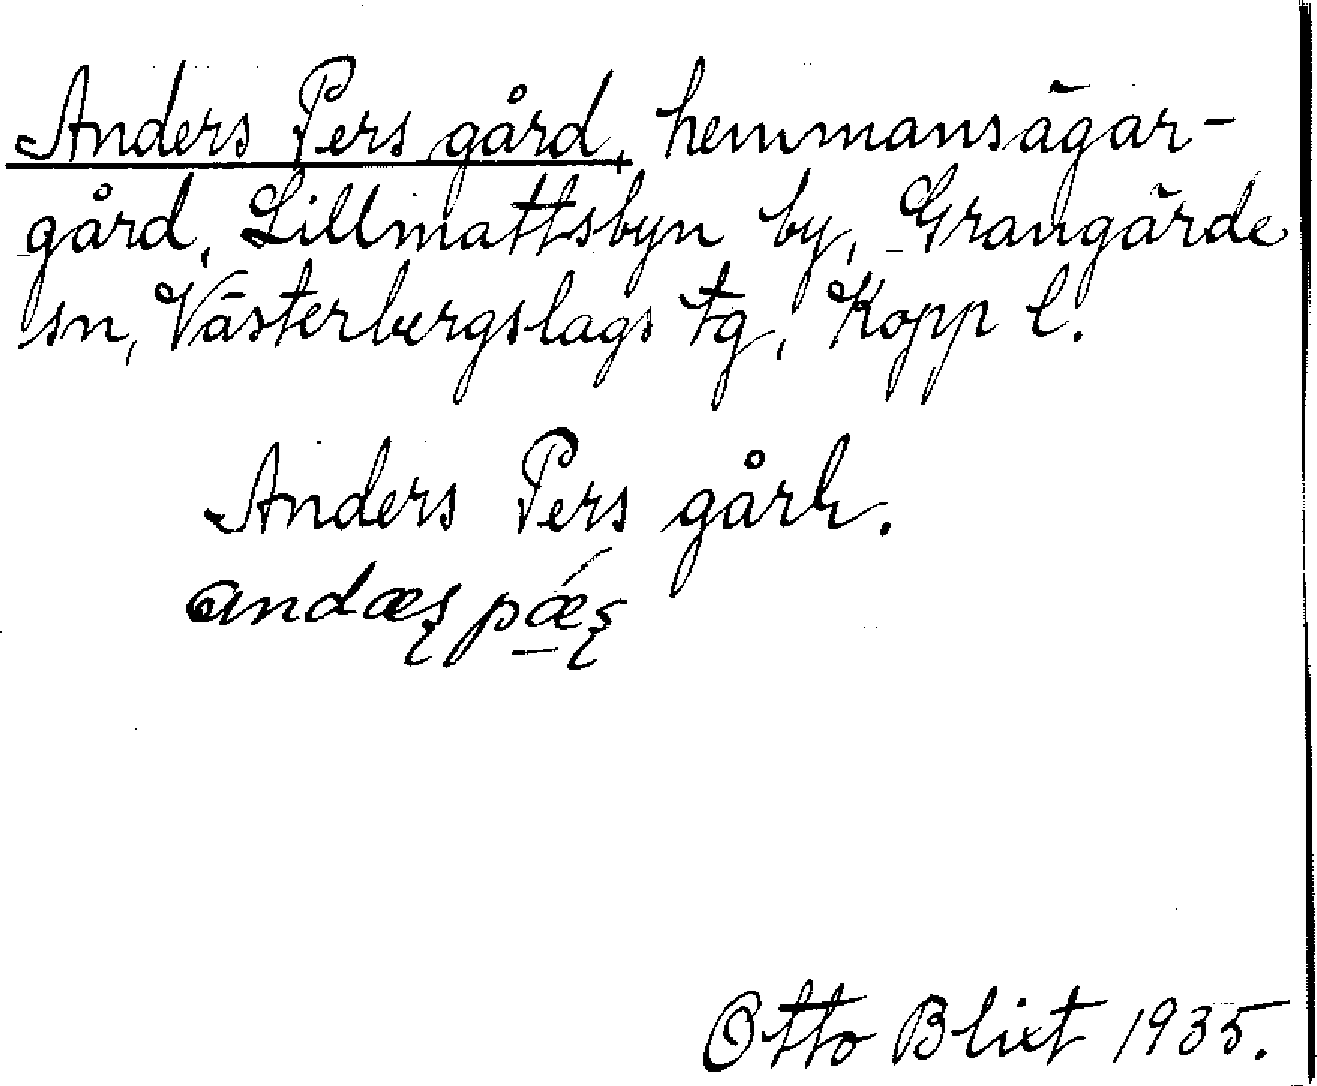 Anders Pers gård, hemmansägar-
gård, Lillmattsbyn by, Grangärde
sn, Västerbergslags tg, Kopp l.
Anders Pers gårh.
andæʂ pǽʂ
Otto Blixt 1935.